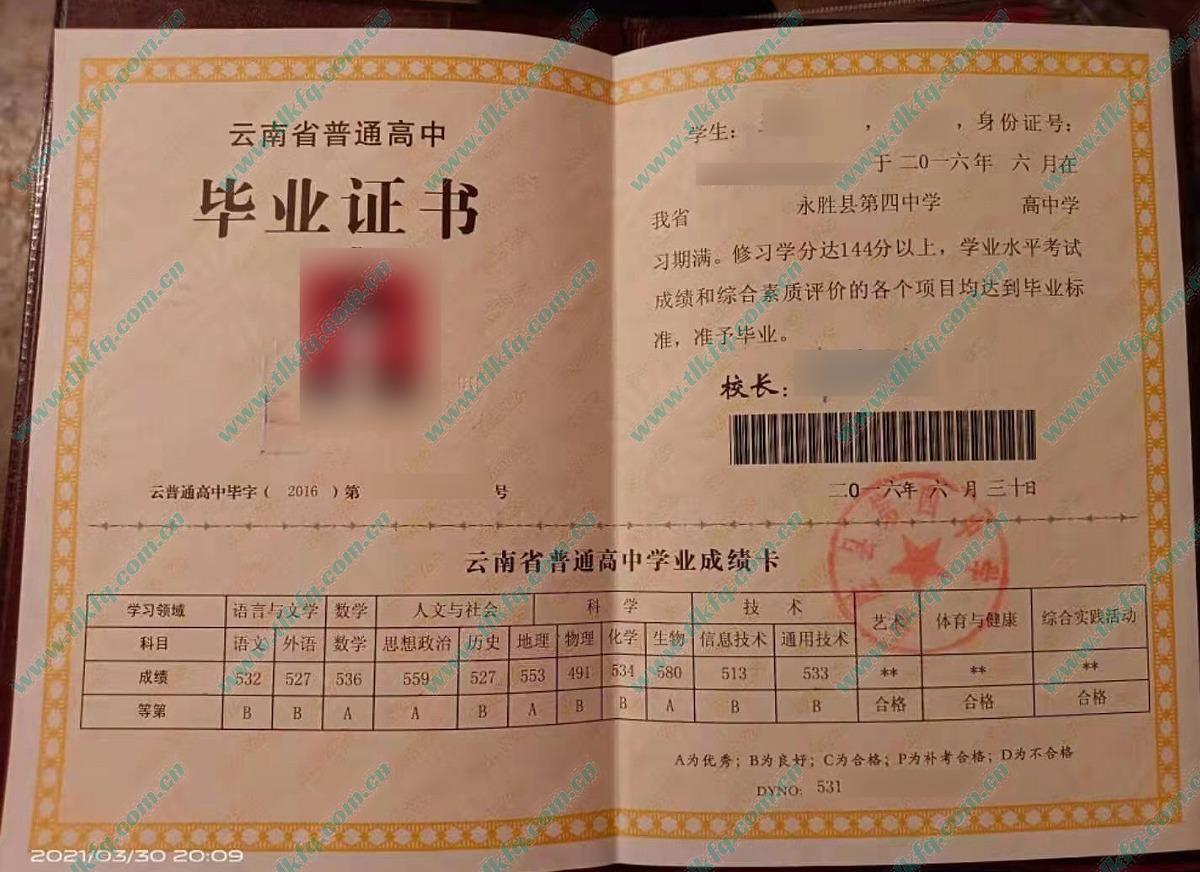 云南省普通高中
毕业证书
云普通高中毕字（ 2016 ）第 号
学生： ， ，身份证号：
于二0一六年 六 月在
我省 永胜县第四中学 高中学
习期满。修习学分达144分以上，学业水平考试
成绩和综合素质评价的各个项目均达到毕业标
准，准予毕业。
校长：
二0一六年 六 月 三十日
云南省普通高中学业成绩卡
学习领域 语言与文学 数学 人文与社会 科 学 技 术 艺术 体育与健康 综合实践活动
科目 语文 外语 数学 思想政治 历史 地理 物理 化学 生物 信息技术 通用技术
成绩 532 527 536 559 527 553 491 534 580 513 533 ** ** **
等第 B B A A B A B B A B B 合格 合格 合格
A为优秀；B为良好；C为合格；P为补考合格；D为不合格
DYNO: 531
2021/03/30 20:09
www.tlkfq.com.cn